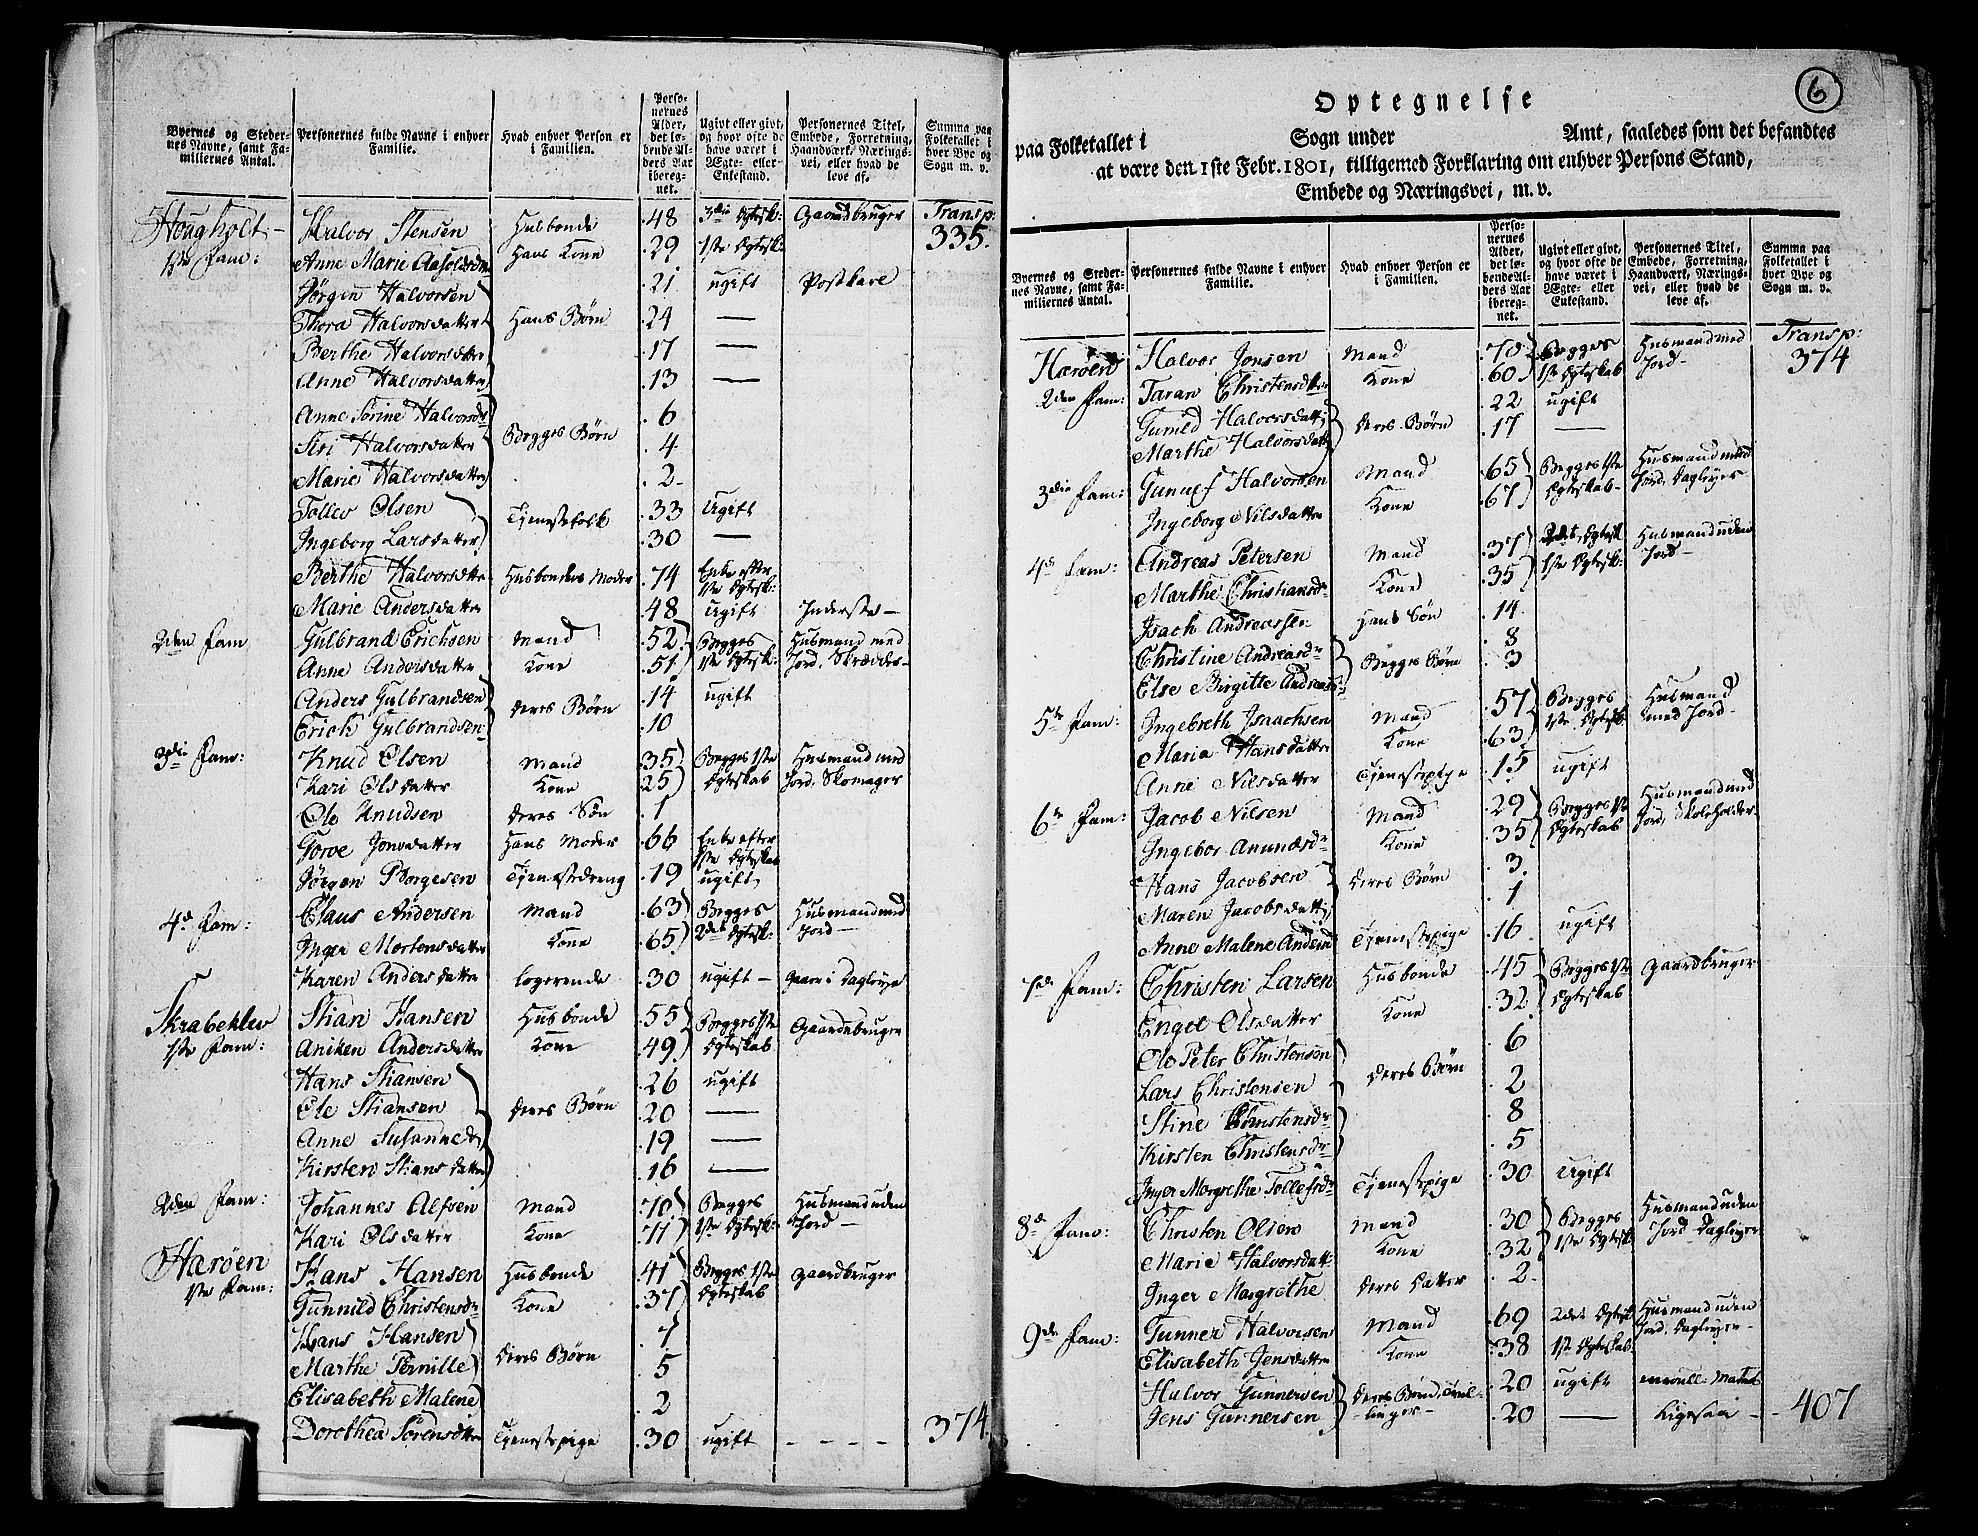 Byernes og Steder-
nes Navne, samt Fa-
miliernes Antal.
Personernes fulde Navne i enhver
Familie.
Hvad enhver Person er
i Familien.
Perso-
nernes
Alder,
det lø-
bende Al-
ders Aar
ibereg-
net.
Ugivt eller givt,
og hvor ofte de
have været i
Ægte- eller
Enkestand.
Personernes Titel,
Embede, Forretning,
Haandværk, Nærings-
vei, eller hvad de
leve af.
Summa paa
Folketallet i
hver Bye og
Sogn m. v.
Hougholt - Halvor Stensen Husbonde 48 3die Egtesk: Gaardbruger Transp: 335.
1ste Fam: Anne Marie Hans Kone 29 1ste Egtesk:
Jørgen Halvorsen 21 ugift Postkare
Thora Halvorsdatter Hans Børn 24 —
Berthe Halvorsdatter 17 —
Anne Halvorsdatter 13 —
Anne Sørine Halvorsdr 6
Siri Halvorsdatter Begges Børn 4
Marie Halvorsdatter 2
Tollev Olsen Tjenestefolk 33 Ugift
Ingeborg Larsdatter 30 —
Berthe Halvorsdatter Husbondens Moder 74 Enke efter 1ste Egtesk:
Marie Andersdatter 48 Ugift Inderste —
2den Fam Gulbrand Erichsen Mand 52 Begges Husmand med
Anne Andersdatter Kone 51 1ste Egtesk: Jord, Skrædder
Anders Gulbrandsen deres Børn 14 ugift
Erich Gulbrandsen 10
3die Fam: Knud Olsen Mand 35 Begges 1ste Husmand med
Kari Olsdatter Kone 25 Egteskab Jord, Skomager
Ole Knudsen deres Søn 1
Torve Jonsdatter Hans Moder 66 Enke efter 1ste Egteskab
Jørgen Borgesen Tjenestedreng 19 ugift
4de Fam: Claus Andersen Mand 63 Begges Husmand med
Inger Mortensdatter Kone 65 2det Egtesk: Jord —
Karen Andersdatter logerende 30 ugift - Gaar i Dagleye
Skrabeklev Stian Hansen Husbonde 55 Begges 1ste Gaardebruger
1ste Fam: Aniken Andersdatter Kone 49 Egteskab
Hans Stiansen 26 ugift
Ole Stiansen deres Børn 20 —
Anne Susanne 19 —
Kirsten Stiansdatter 16 —
2den Fam: Johannes Alfsen Mand 70 Begges Husmand uden
Kari Olsdatter Kone 71 1ste Egtesk: Jord —
Harøen Hans Hansen Husbonde 41 Begges 1ste gaardbruger
1ste Fam: Gunnild Christensdr Kone 37 Egteskab
Hans Hansen 7
Marthe Pernille deres Børn 5
Elisabeth Malene 2
Dorothea Sørensdatter Tjenestepige 30 ugift - - - - 374.
6
Optegnelse
paa Folketallet i Sogn under Amt, saaledes som det befandtes
at være den 1ste Febr. 1801, tilligemed Forklaring om enhver Persons Stand,
Embede og Næringsvei, m. v.
Byernes og Steder-
nes Navne, samt Fa-
miliernes Antal.
Personernes fulde Navne i enhver
Familie.
Hvad enhver Person er
i Familien.
Perso-
nernes
Alder,
det lø-
bende Al-
ders Aar
ibereg-
net.
Ugivt eller givt,
og hvor ofte de
have været i
Ægte- eller
Enkestand.
Personernes Titel,
Embede, Forretning,
Haandværk, Nærings-
vei, eller hvad de
leve af.
Summa paa
Folketallet i
hver Bye og
Sogn m. v.
Harøen Halvor Jonsen Mand 70 Begges Husmand med Transp: 374
2den Fam: Taran Christensdatter Kone 60 1ste Egteskab Jord -
Gunild Halvorsdatter deres Børn 22 ugift
Marthe Halvorsdatter 17 —
3die Fam: Gunulf Halvorsen Mand 65 Begges 1ste Husmand med
Ingeborg Nilsdatter Kone 67 Egteskab - Jord, Dagleyer
4de Fam: Andreas Petersen Mand 37 2det Egtesk Husmand uden
Marthe Christiansdr Kone 35 1ste Egtesk: Jord —
Isach Andreassen Hans Søn 14
Christine Andreasdr Begges Børn 8
Else Birgitte Andreasdr 3
5te Fam: Ingebreth Isaachsen Mand 57 Begges Husmand
Maria Hansdatter Kone 63 1ste Egtesk: med Jord -
Anne Nilsdatter Tjenestepige 15 ugift
6te Fam: Jacob Nilsen Mand 29 Begges 1ste Husmand med
Ingebor Anundsdr Kone 35 Egteskab Jord, Skoleholder
Hans Jacobsen deres Børn 3
Maren Jacobsdatter 1
Anne Malene Tjenestepige 16 ugift
7de Fam: Christen Larsen Husbonde 45 Begges 1ste gaardbruger
Engel Olsdatter Kone 32 Egteskab
Ole Peter Christensen 6
Lars Christensen deres Børn 2
Stine Christensdr 8
Kirsten Christensdr 5
Inger Margrethe Tollefsdr Tjenestepige 30 Ugift
8de Fam: Christen Olsen Mand 30 Begges Husmand uden
Marie Halvorsdatt Kone 32 1ste Egtesk: Jord Dagleyer
Inger Margrethe deres Datter 2
9de Fam: Gunner Halvorsen Mand 69 2det Egtesk Husmand uden
Elisabeth Jensdatter Kone 38 1ste Egteskab Jord, Dagleyer -
Halvor Gunnersen deres Børn, Tvil- 20 ugift enroull: Matros
Jens Gunnersen - linger - 20 — Ligesaa - - 407